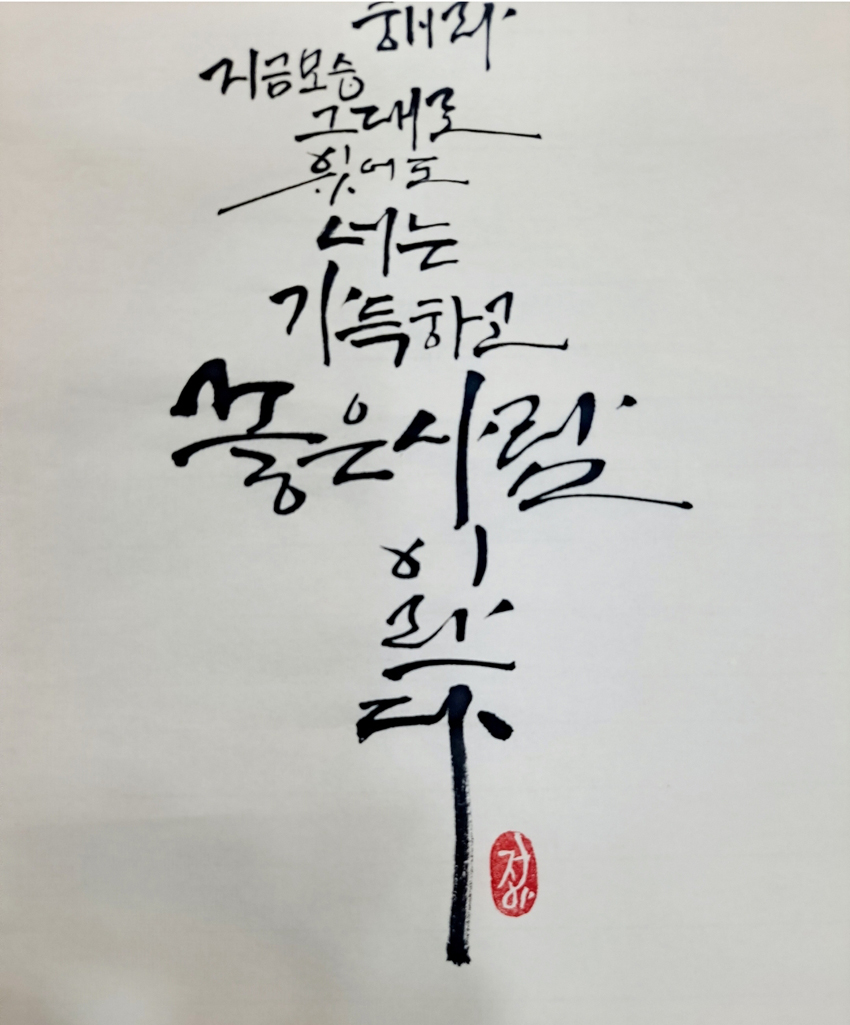 해라
지금모습
그대로
있어도
너는
가득하고
좋은사람
이
란
다
정아